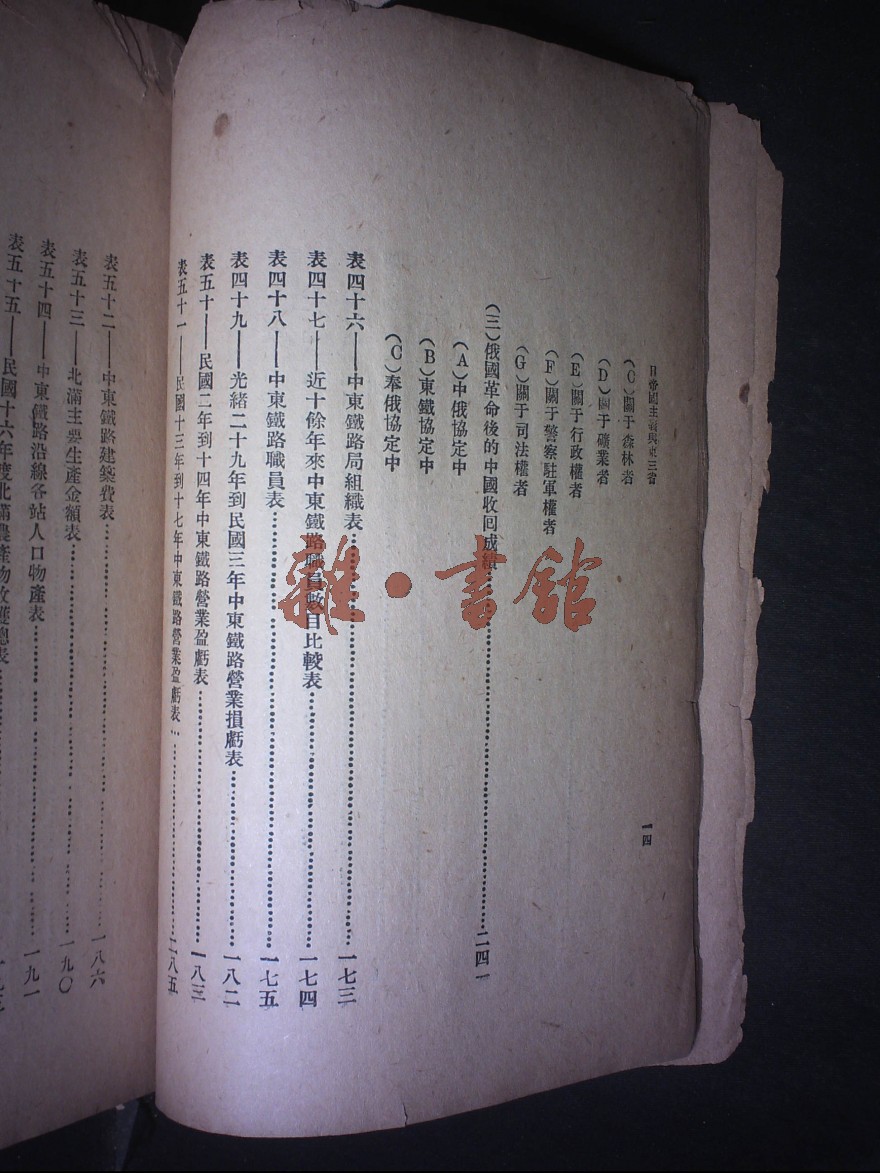 日帝國主義與東三省
(C)關于森林者
(D)關于礦業者
(E)關于行政權者
(F)關于警察駐軍權者
(G)關于司法權者
(三)俄國革命後的中國收回成績……二四一
(A)中俄協定中
(B)東鐵協定中
(C)奉俄協定中
表四十六——中東鐵路局組織表……一七三
表四十七——近十餘年來中東鐵路職員數目比較表……一七四
表四十八——中東鐵路職員表……一七五
表四十九——光緒二十九年到民國三年中東鐵路營業損虧表……一八二
表五十——民國二年到十四年中東鐵路營業盈虧表……一八三
表五十一——民國十三年到十七年中東鐵路營業盈虧表……一八五
一四
表五十二——中東鐵路建築費表……一八六
表五十三——北滿主要生產金額表……一九〇
表五十四——中東鐵路沿線各站人口物產表……一九一
表五十五——民國十六年度北滿農產物收穫總表……
雜·書館